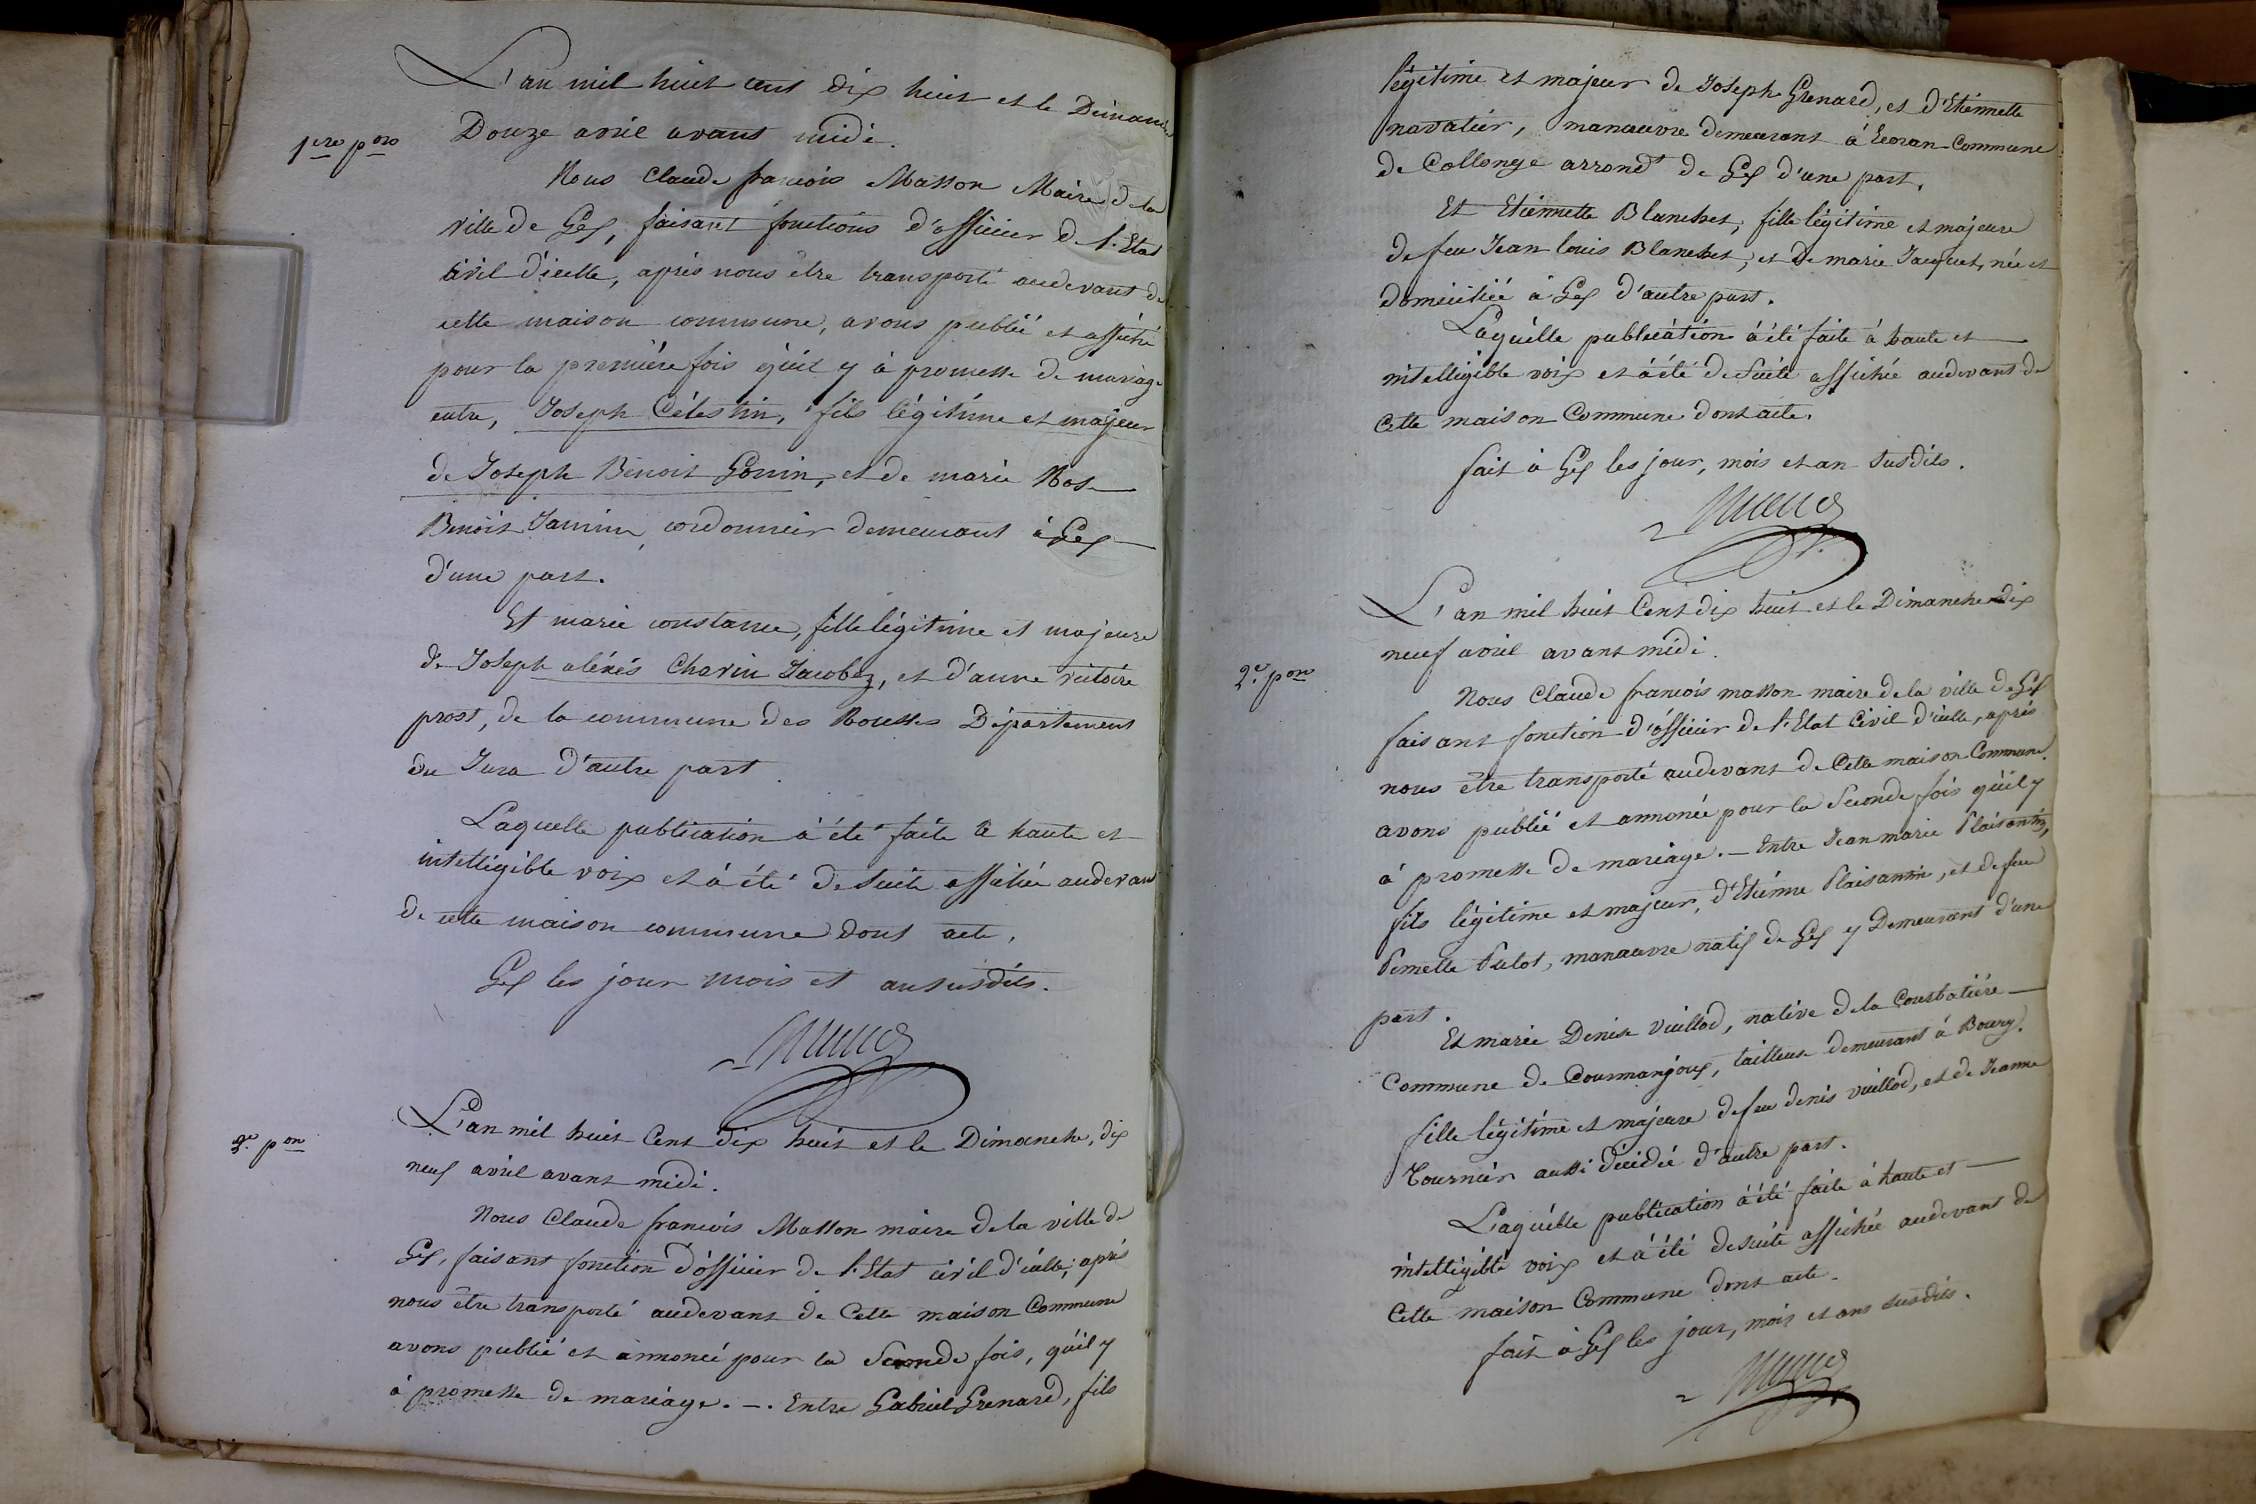 L'an mil huit cent dix huit et le Dimanche
1ere pon Douze avril avant midi.
Nous Claude francois Masson Maire de la
ville de Gex, faisant fonctions d'officier de l'Etat
civil d'icelle, après nous être transporté audevant de
cette maison commune, avons publié et affiché
pour la première fois qu'il y à promesse de mariage
entre, Joseph Célestin, fils légitime et majeur
de Joseph Benoit Gonin, et de marie Rose
Benoit Jannin, cordonnier demeurant à Gex
d'une part.
Et marie constance, fille légitime et majeure
de Joseph aléxés Chavin Jacobez, et d'anne victoire
prost, de la commune des Rousses Département
du Jura d'autre part.
Laquelle publication à été faite à haute et
intelligible voix et à été de suite affichée audevant
de cette maison commune dont acte.
Gex les jour mois et an susdits.
L'an mil huit Cent dix huit et le Dimanche, dix
2e. pon neuf avril avant midi.
Nous Claude francois Masson maire de la ville de
Gex, faisant fonction d'officier de l'Etat civil d'icelle, après
nous être transporté audevant de Cette maison Commune
avons publié et annoncé pour la Seconde fois, qu'il y
à promesse de mariage. —. Entre Gabriel Grenard, fils
légitime et majeur de Joseph Grenard, et d'Etiennette
navatier, manœuvre demeurant à Ecoran Commune
de Collonge arrondt de Gex d'une part.
Et Etiennette Blanchet, fille légitime et majeure
de feu Jean louis Blanchet, et de marie Jacquet, née et
domiciliée à Gex d'autre part.
Laquelle publication à été faite à haute et
intelligible voix et à été de suite affichée audevant de
Cette maison Commune dont acte.
fait à Gex les jour, mois et an susdits.
L'an mil huit Cent dix huit et le Dimanche dix
neuf avril avant midi.
2e. pon Nous Claude francois masson maire de la ville de Gex
faisant fonction d'officier de l'Etat Civil d'icelle, après
nous être transporté audevant de Cette maison Commune.
avons publié et annoncé pour la Seconde fois qu'il y
à promesse de mariage. — Entre Jean marie Plaisantin,
fils légitime et majeur, d'Etienne Plaisantin, et de feu
Pernette Pelot, manœuvre natif de Gex y Demeurant d'une
part.
Et marie Denise Vuillod, native de la
Commune de Courmangoux, tailleuse demeurant à Bourg.
fille légitime et majeure de feu denis vuillod, et de Jeanne
Tournier aussi décidée d'autre part.
Laquelle publication à été faite à haute et
intelligible voix et à été de suite affichée audevant de
Cette maison Commune dont acte.
fait à Gex les jour, mois et ans susdits.